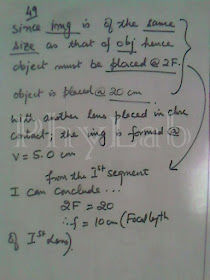 49
since img is of the same
size as that of obj hence
object must be placed @ 2F.
object is placed @ 20 cm
with another lens placed in close
contact; the img is formed @
v = 5.0 cm
from the Ist segment
I can conclude...
2F = 20
∴ f = 10 cm (Focal length
of Ist lens)